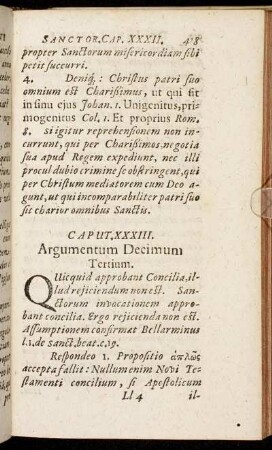 SANCTOR. CAP. XXXII. 48
propter Sanctorum misericordiam sibi
petit succurri.
4. Deniq́; Christus patri suo
omnium est Charissimus, ut qui sit
in sinu ejus Johan. 1. Unigenitus, pri-
mogenitus Col. 1. Et proprius Rom.
8. si igitur reprehensionem non in-
currunt, qui per Charissimos negotia
sua apud Regem expediunt, nec illi
procul dubio crimine se obstringent, qui
per Christum mediatorem cum Deo a-
gunt, ut qui incomparabiliter patri suo
sit charior omnibus Sanctis.
CAPUT. XXXIII.
Argumentum Decimum
Tertium.
QUicquid approbant Concilia, il-
lud rejiciendum non est. San-
ctorum invocationem appro-
bant concilia. Ergo rejicienda non est.
Assumptionem confirmat Bellarminus
l. 1. de sanct. beat. c. 19.
Respondeo 1. Propositio ἁπλῶς
accepta fallit: Nullum enim Novi Te-
stamenti concilium, si Apostolicum
Ll 4 il-